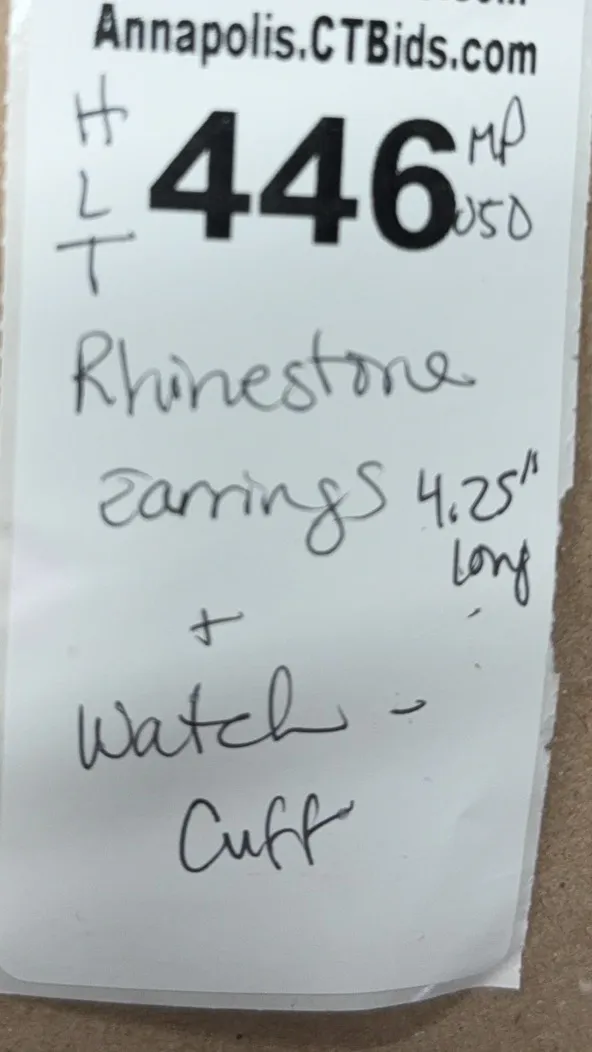 Annapolis.CTBids.com
H
L
T
446
MP
USD
Rhinestone
Earrings 4.25"
long
+
Watch -
Cuff